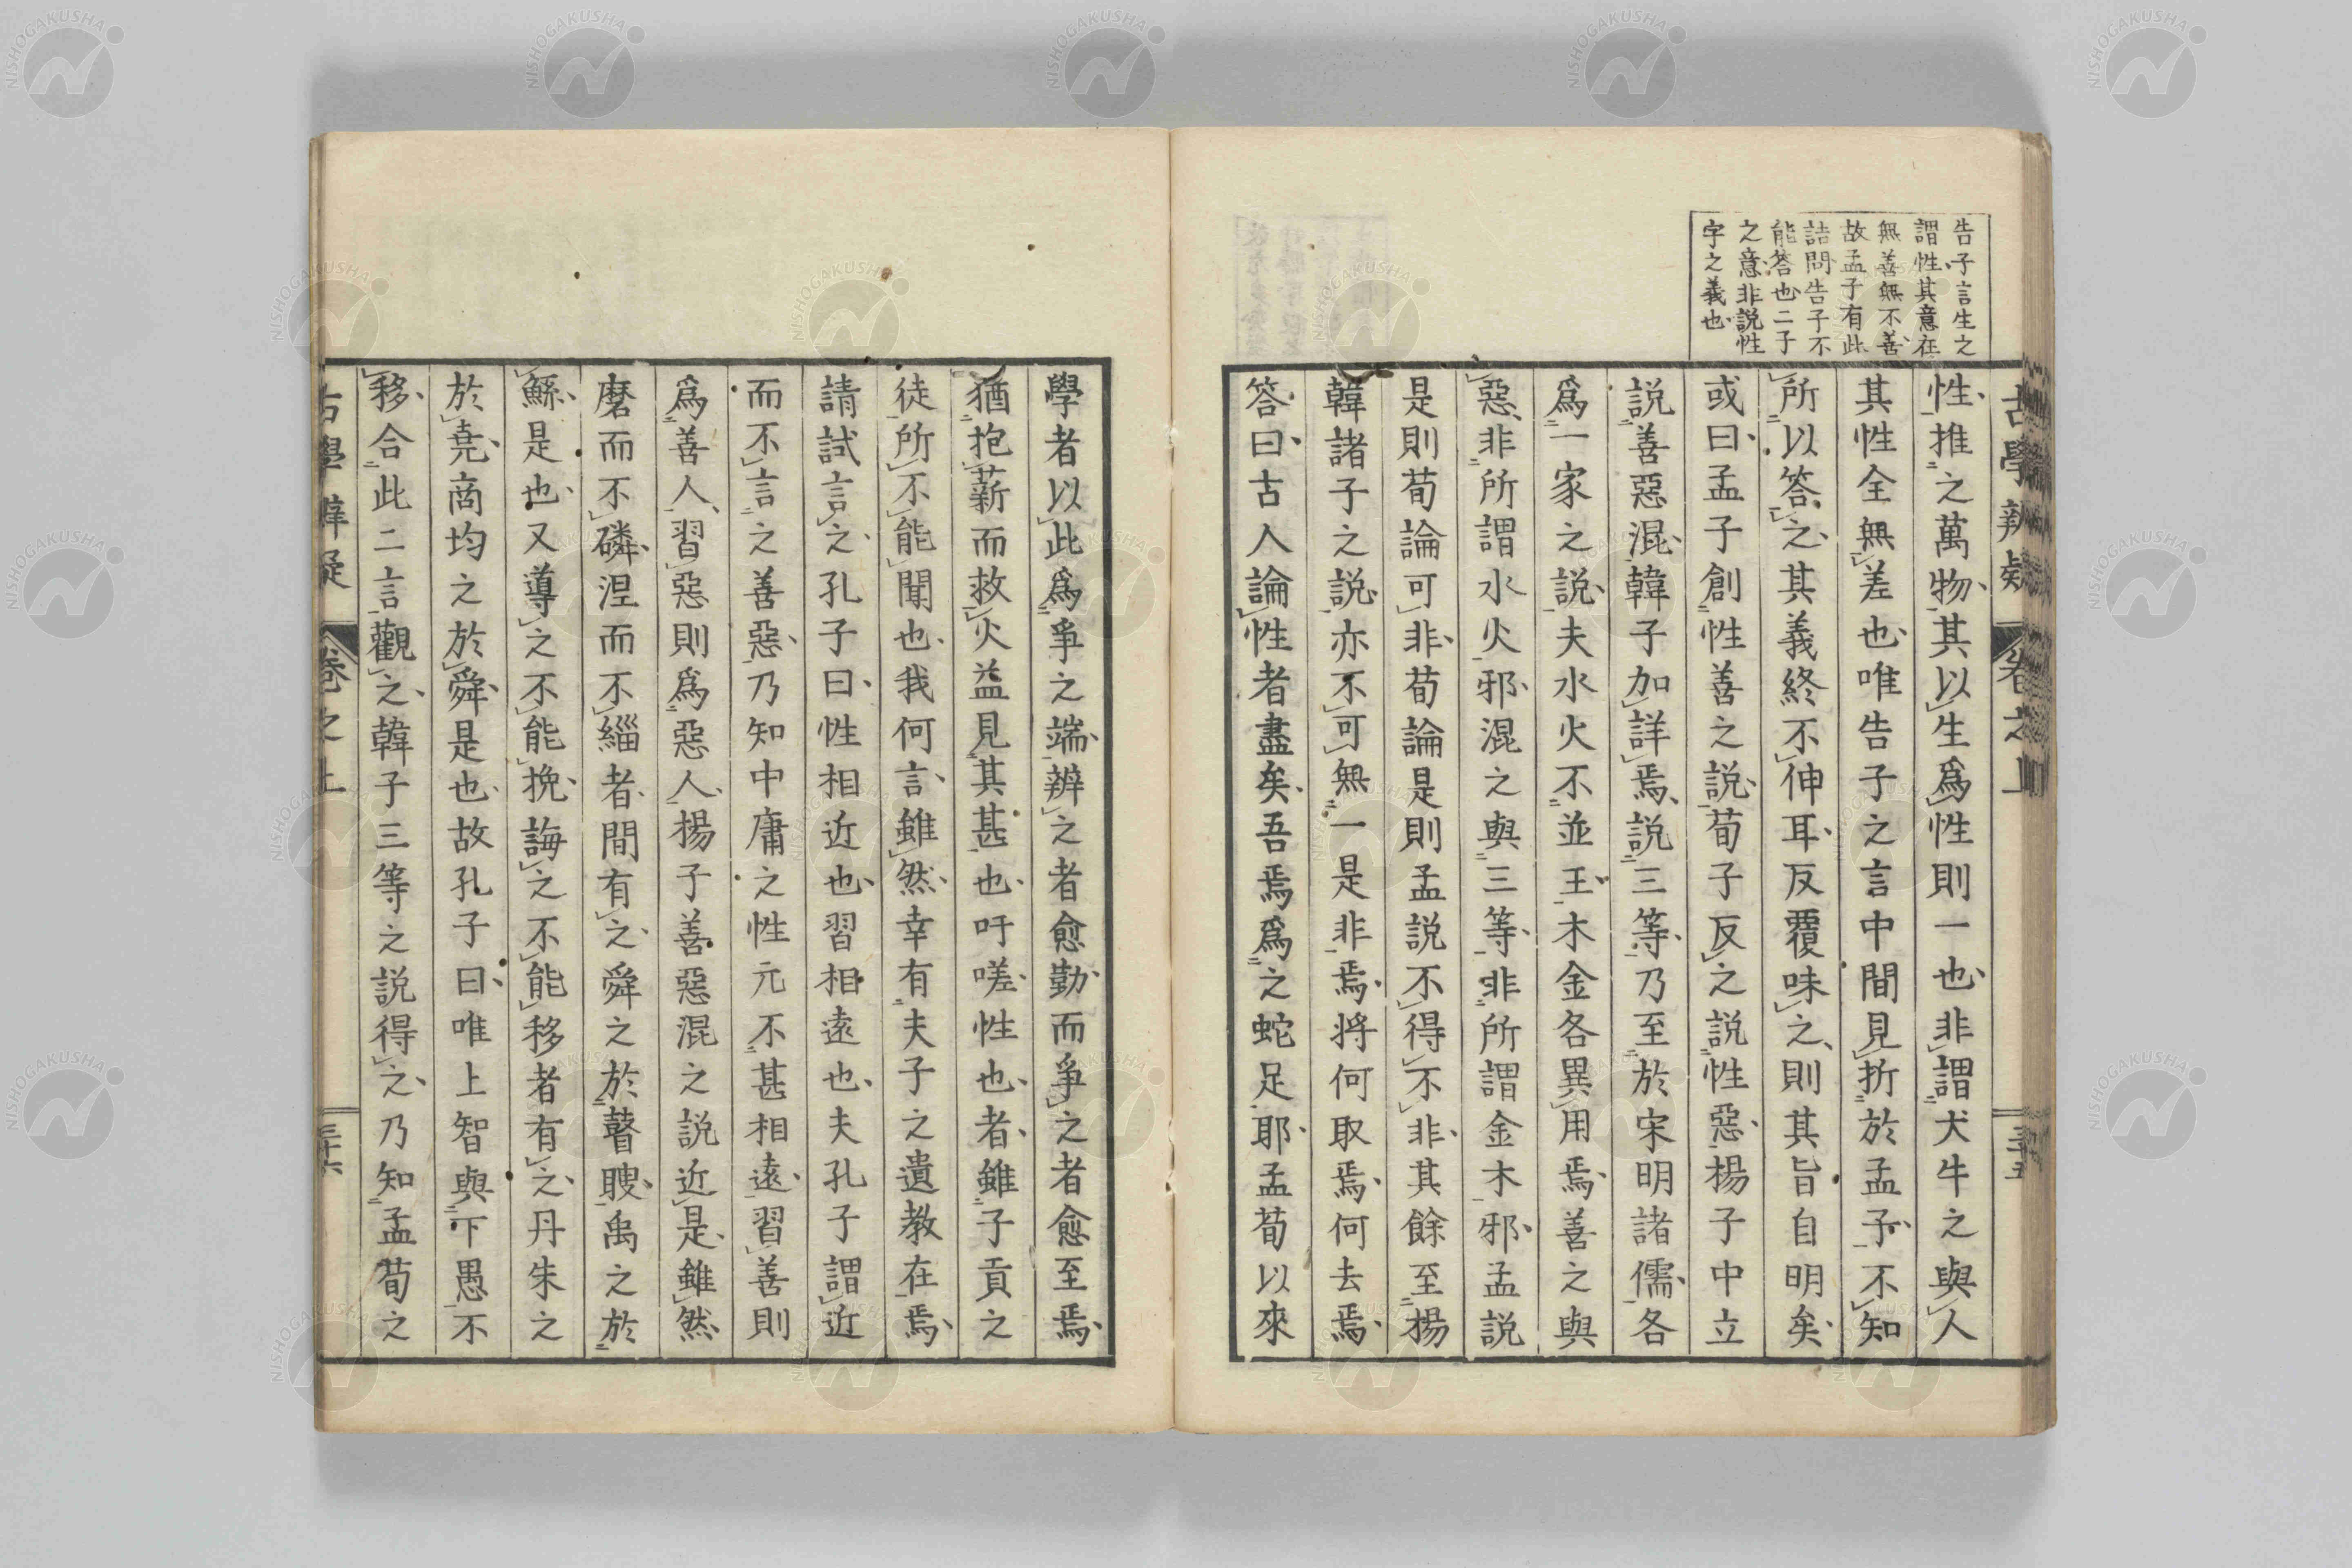 告子言生之
謂性其意在
無善無不善
故孟子有此
詰問告子不
能答也二子
之意非説性
字之義也
古學辨疑 卷之上 三十五
性推之萬物其以生爲性則一也非謂犬牛之與人
其性全無差也唯告子之言中間見折於孟子不知
所以答之其義終不伸耳反覆味之則其旨自明矣
或曰孟子創性善之説荀子反之説性惡楊子中立
説善惡混韓子加詳焉説三等乃至於宋明諸儒各
爲一家之説夫水火不並王木金各異用焉善之與
惡非所謂水火邪混之與三等非所謂金木邪孟説
是則荀論可非荀論是則孟説不得不非其餘至楊
韓諸子之説亦不可無一是非焉將何取焉何去焉
答曰古人論性者盡矣吾焉爲之蛇足耶孟荀以來
學者以此爲爭之端辨之者愈勤而爭之者愈至焉
猶抱薪而救火益見其甚也吁嗟性也者雖子貢之
徒所不能聞也我何言雖然幸有夫子之遺教在焉
請試言之孔子曰性相近也習相遠也夫孔子謂近
而不言之善惡乃知中庸之性元不甚相遠習善則
爲善人習惡則爲惡人楊子善惡混之説近是雖然
磨而不磷涅而不緇者間有之舜之於瞽瞍禹之於
鯀是也又導之不能挽誨之不能移者有之丹朱之
於堯商均之於舜是也故孔子曰唯上智與下愚不
移合此二言觀之韓子三等之説得之乃知孟荀之
古學辨疑 卷之上 三十六
NISHOGAKUSHA